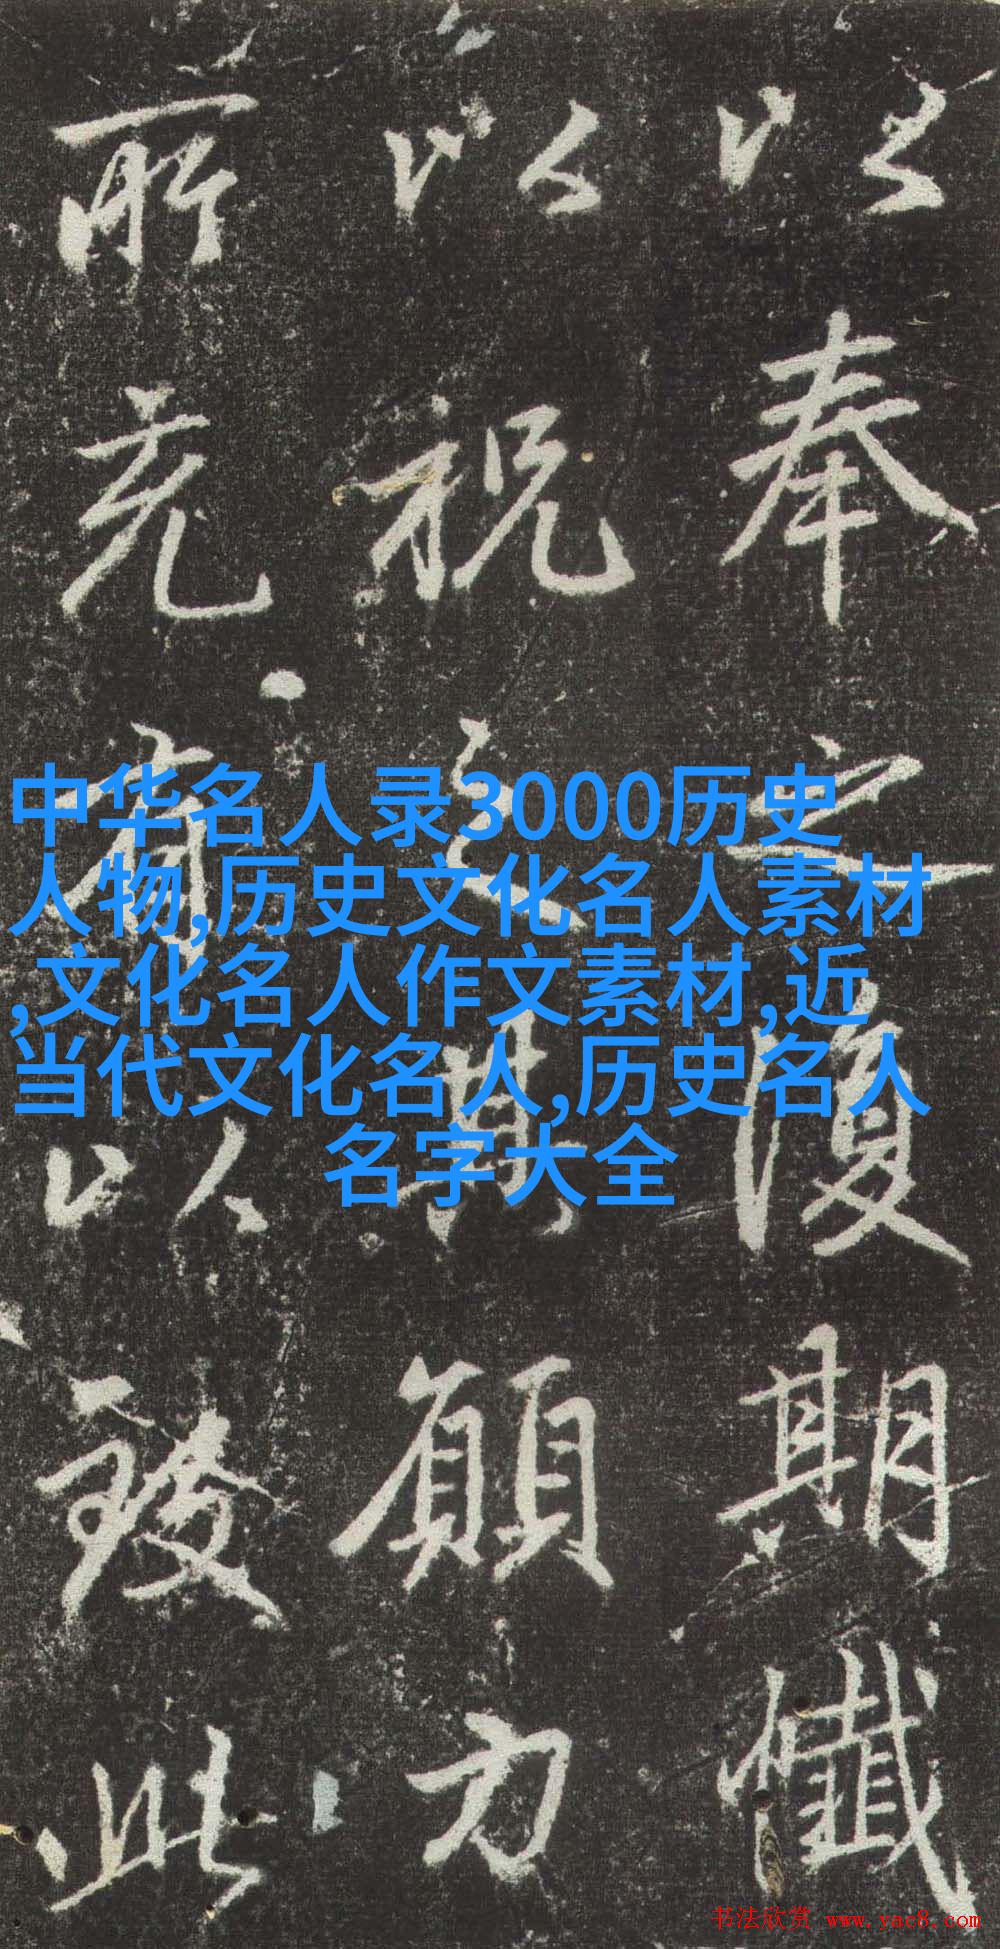 以奉之復期懺
以祝之其願力
所充有以致此
中华名人录3000历史
人物,历史文化名人素材
,文化名人作文素材,近
当代文化名人,历史名人
名字大全
书法欣赏 www.yac8.com